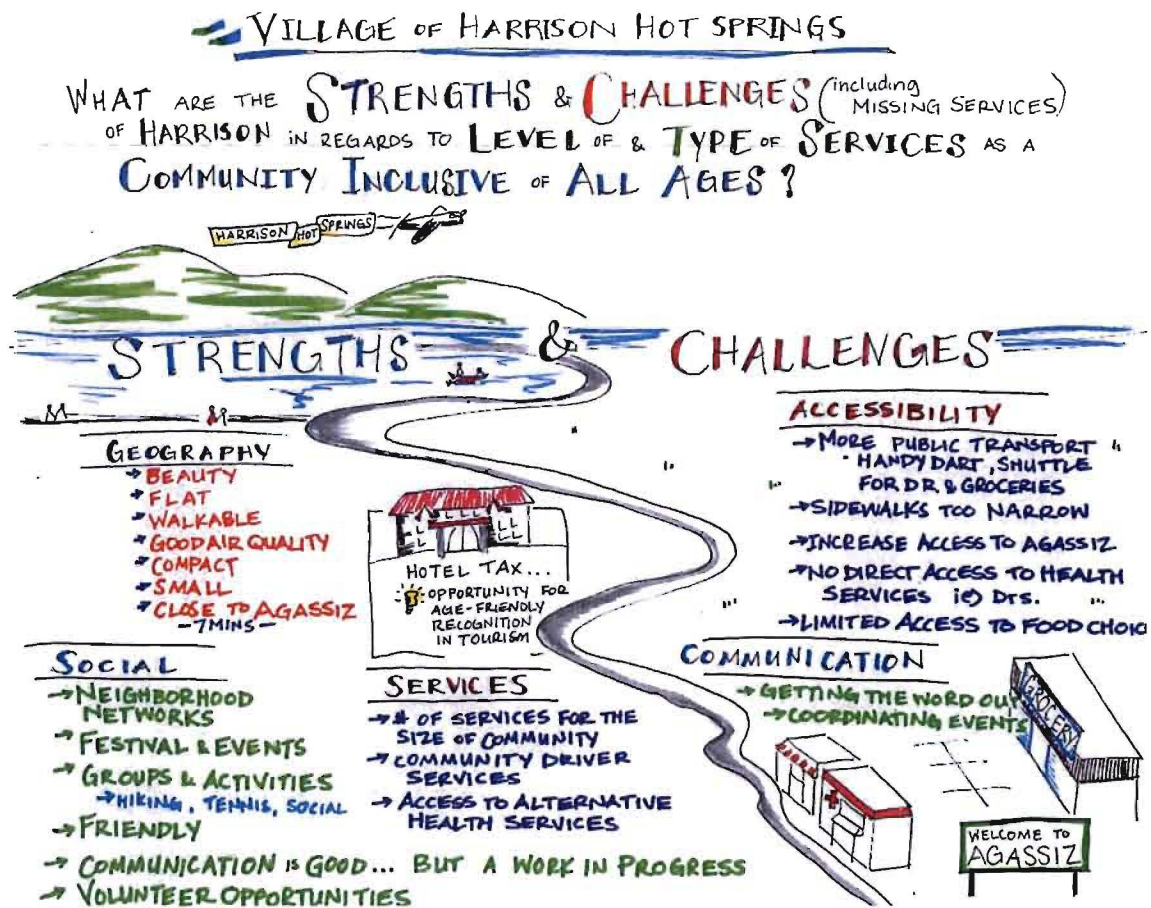 VILLAGE OF HARRISON HOT SPRINGS
WHAT ARE THE STRENGTHS & CHALLENGES (including MISSING SERVICES)
OF HARRISON IN REGARDS TO LEVEL OF & TYPE OF SERVICES AS A
COMMUNITY INCLUSIVE OF ALL AGES?
HARRISON HOT SPRINGS
STRENGTHS & CHALLENGES
GEOGRAPHY
→ BEAUTY
→ FLAT
→ WALKABLE
→ GOOD AIR QUALITY
→ COMPACT
→ SMALL
→ CLOSE TO AGASSIZ
- 7 MINS -
HOTEL TAX...
OPPORTUNITY FOR
AGE-FRIENDLY
RECOGNITION
IN TOURISM
SOCIAL
→ NEIGHBORHOOD
NETWORKS
→ FESTIVAL & EVENTS
→ GROUPS & ACTIVITIES
→ HIKING, TENNIS, SOCIAL
→ FRIENDLY
→ COMMUNICATION IS GOOD... BUT A WORK IN PROGRESS
→ VOLUNTEER OPPORTUNITIES
SERVICES
→ # OF SERVICES FOR THE
SIZE OF COMMUNITY
→ COMMUNITY DRIVER
SERVICES
→ ACCESS TO ALTERNATIVE
HEALTH SERVICES
ACCESSIBILITY
→ MORE PUBLIC TRANSPORT
HANDY DART, SHUTTLE
FOR DR. & GROCERIES
→ SIDEWALKS TOO NARROW
→ INCREASE ACCESS TO AGASSIZ
→ NO DIRECT ACCESS TO HEALTH
SERVICES ie) Drs.
→ LIMITED ACCESS TO FOOD CHOIC
COMMUNICATION
→ GETTING THE WORD OUT
→ COORDINATING EVENTS
GROCERY
WELCOME TO
AGASSIZ